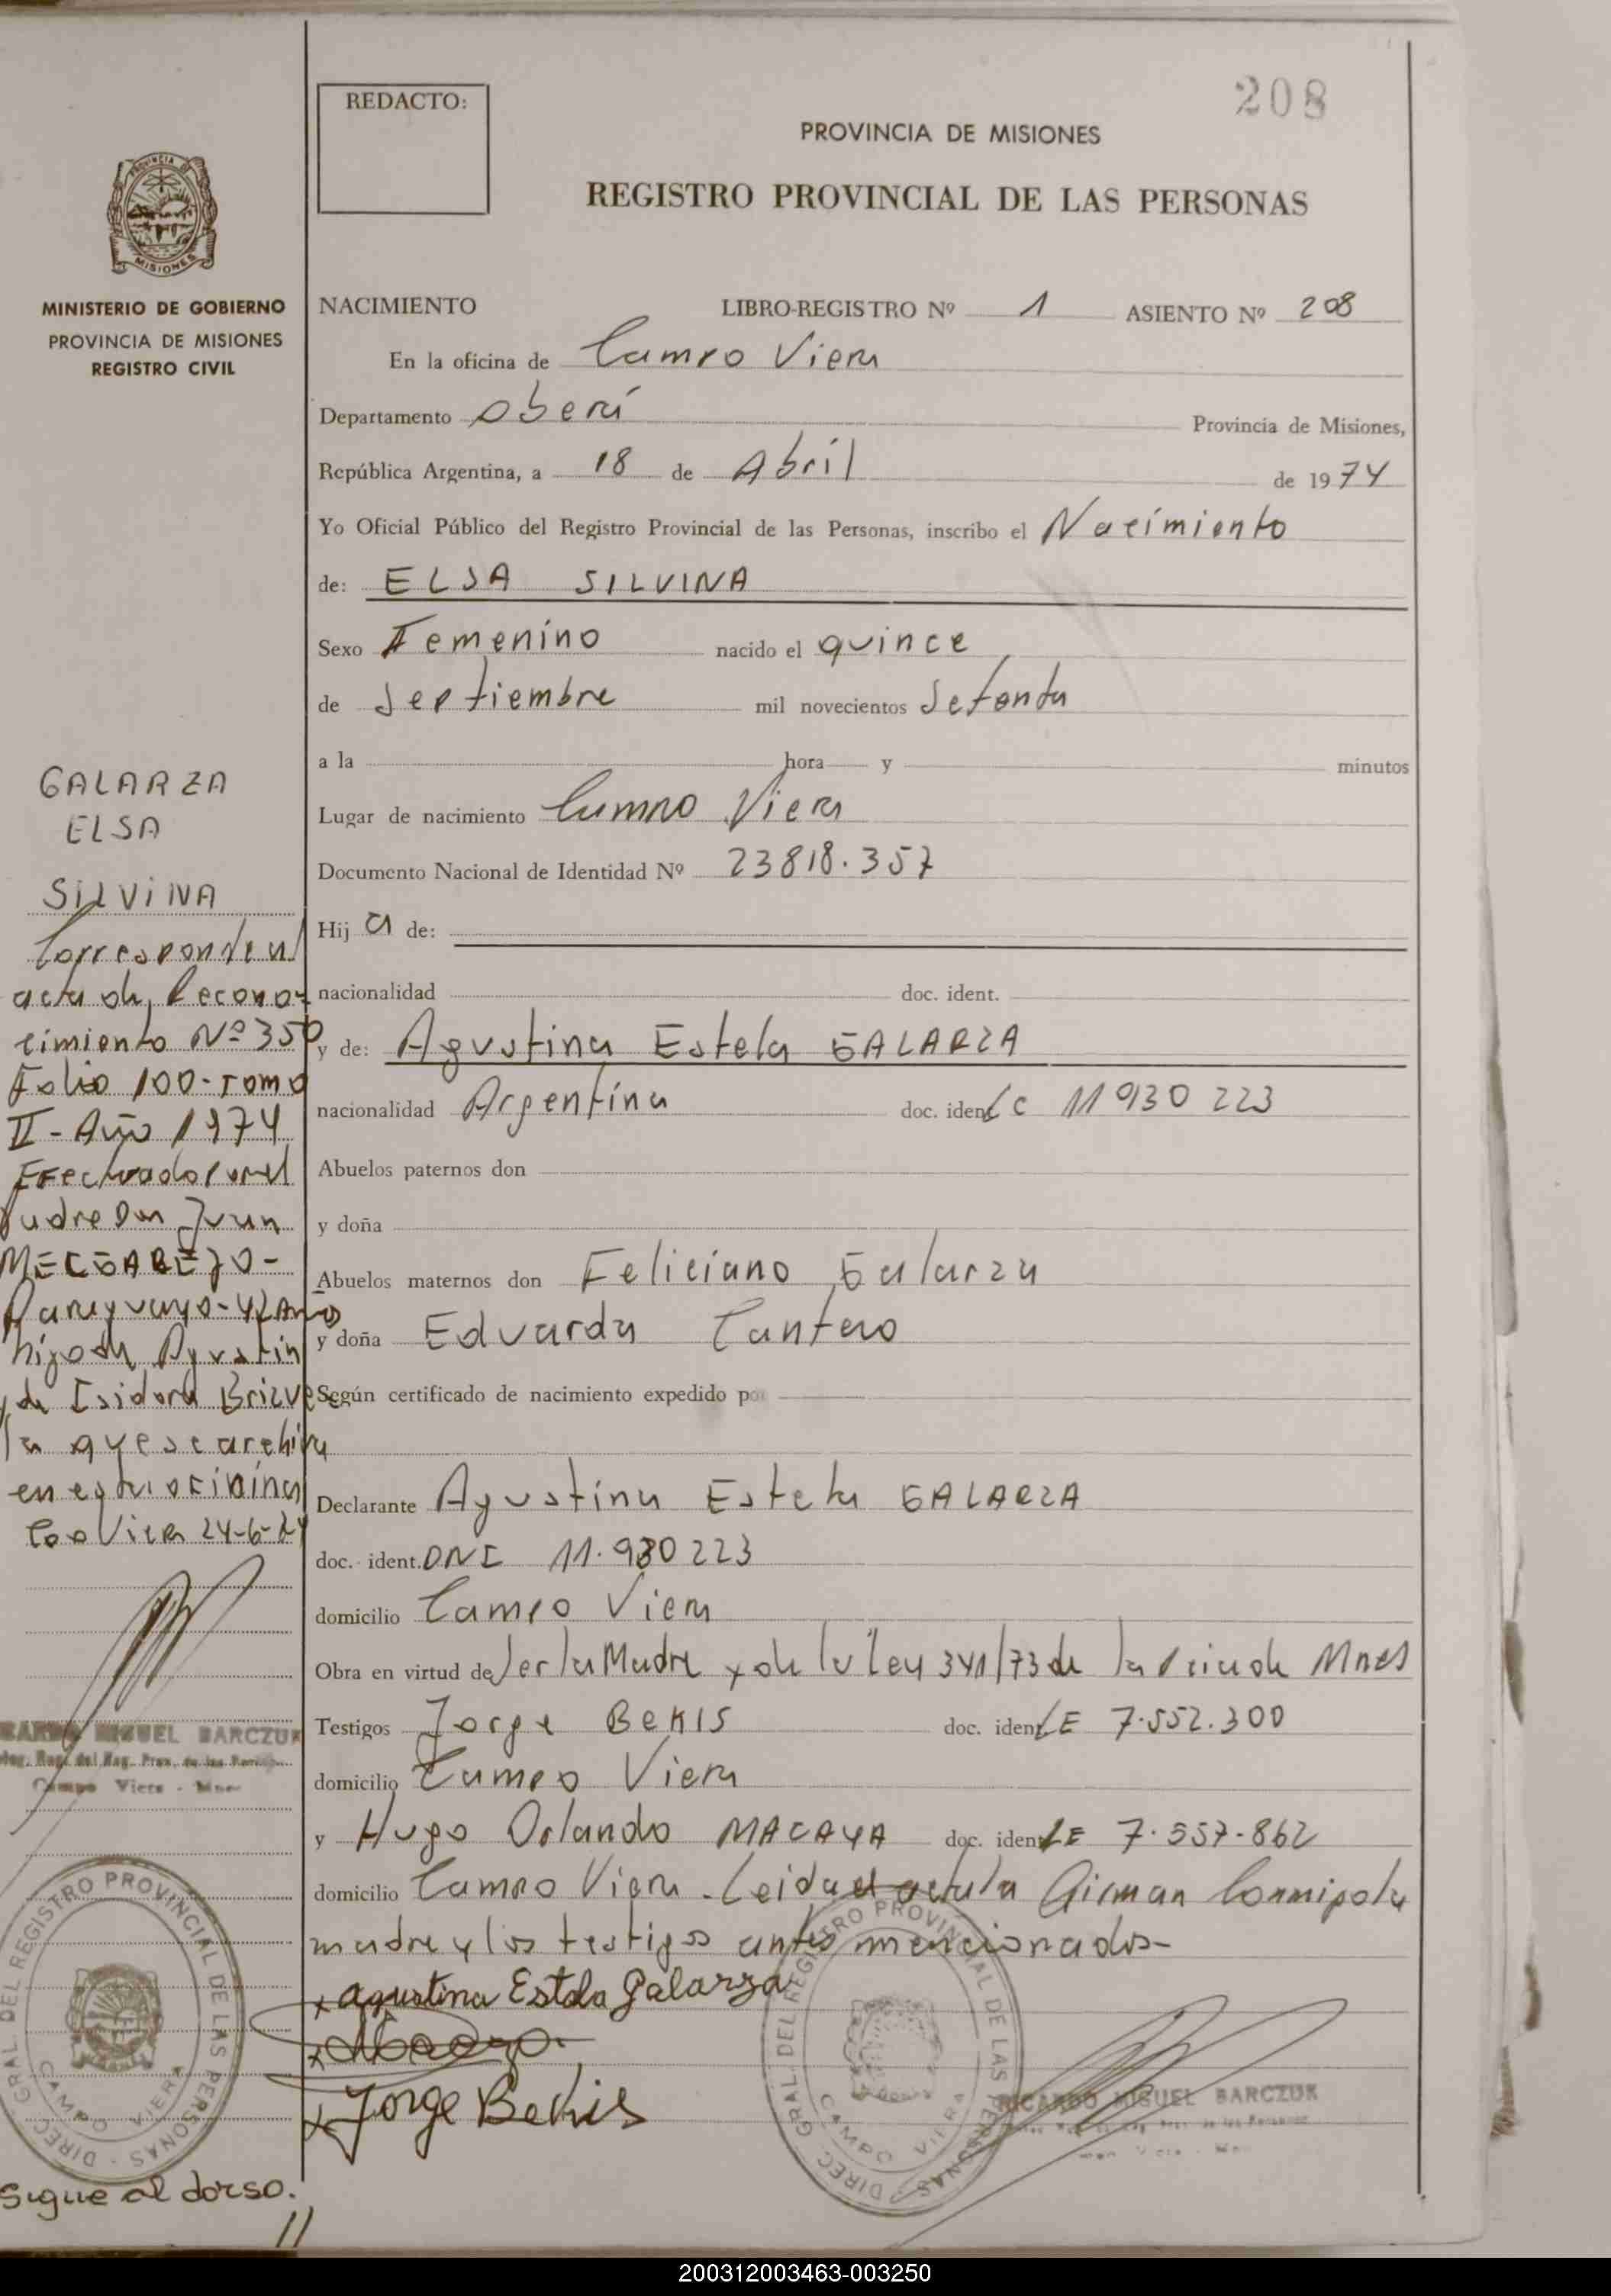 208
REDACTO:
PROVINCIA DE MISIONES
REGISTRO PROVINCIAL DE LAS PERSONAS
PROVINCIA DE MISIONES
MINISTERIO DE GOBIERNO
PROVINCIA DE MISIONES
REGISTRO CIVIL
NACIMIENTO LIBRO-REGISTRO Nº 1 ASIENTO Nº 208
En la oficina de Campo Viera
Departamento Oberá Provincia de Misiones,
República Argentina, a 18 de Abril de 1974
Yo Oficial Público del Registro Provincial de las Personas, inscribo el Nacimiento
de: ELSA SILVINA
Sexo Femenino nacido el quince
de Septiembre mil novecientos Setenta
a la hora y minutos
Lugar de nacimiento Campo Viera
Documento Nacional de Identidad Nº 23818.357
Hij a de:
nacionalidad doc. ident.
y de: Agustina Estela GALARZA
nacionalidad Argentina doc. ident LC 11 930 223
Abuelos paternos don
y doña
Abuelos maternos don Feliciano Galarza
y doña Eduarda Cantero
Según certificado de nacimiento expedido por
Declarante Agustina Estela GALARZA
doc. ident. DNI 11.930 223
domicilio Campo Viera
Obra en virtud de ser la Madre y de la Ley 341/73 de la Pcia de Mnes
Testigos Jorge BEKIS doc. ident LE 7.552.300
domicilio Campo Viera
y Hugo Orlando MACAYA doc. ident LE 7.557.862
domicilio Campo Viera. Leida el acta la firman Conmigo la
madre y los testigos antes mencionados-
x Agustina Estela Galarza
x Jorge Bekis
GALARZA
ELSA
SILVINA
Corresponde al
acta de Recono-
cimiento Nº 350
Folio 100-Tomo
II - Año 1974
Efectuado por el
Padre Don Juan
Paraguayo-42 Años
hijo de Agustin
y de Isidora Brizue
la que se archiva
en esta oficina
Cpo Viera 24-6-
RICARDO MIGUEL BARCZUK
Campo Viera - Mnes
DIREC. GRAL. DEL REGISTRO PROVINCIAL DE LAS PERSONAS
CAMPO VIERA
DIREC. GRAL. DEL REGISTRO PROVINCIAL DE LAS PERSONAS
CAMPO VIERA
RICARDO MIGUEL BARCZUK
Sigue al dorso.
//
200312003463-003250